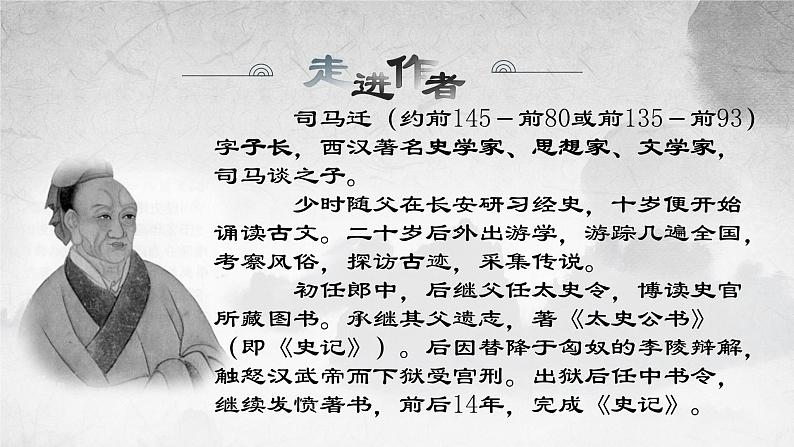 走进作者
司马迁（约前145－前80或前135－前93）
字子长，西汉著名史学家、思想家、文学家，
司马谈之子。
少时随父在长安研习经史，十岁便开始
诵读古文。二十岁后外出游学，游踪几遍全国，
考察风俗，探访古迹，采集传说。
初任郎中，后继父任太史令，博读史官
所藏图书。承继其父遗志，著《太史公书》
（即《史记》）。后因替降于匈奴的李陵辩解，
触怒汉武帝而下狱受宫刑。出狱后任中书令，
继续发愤著书，前后14年，完成《史记》。